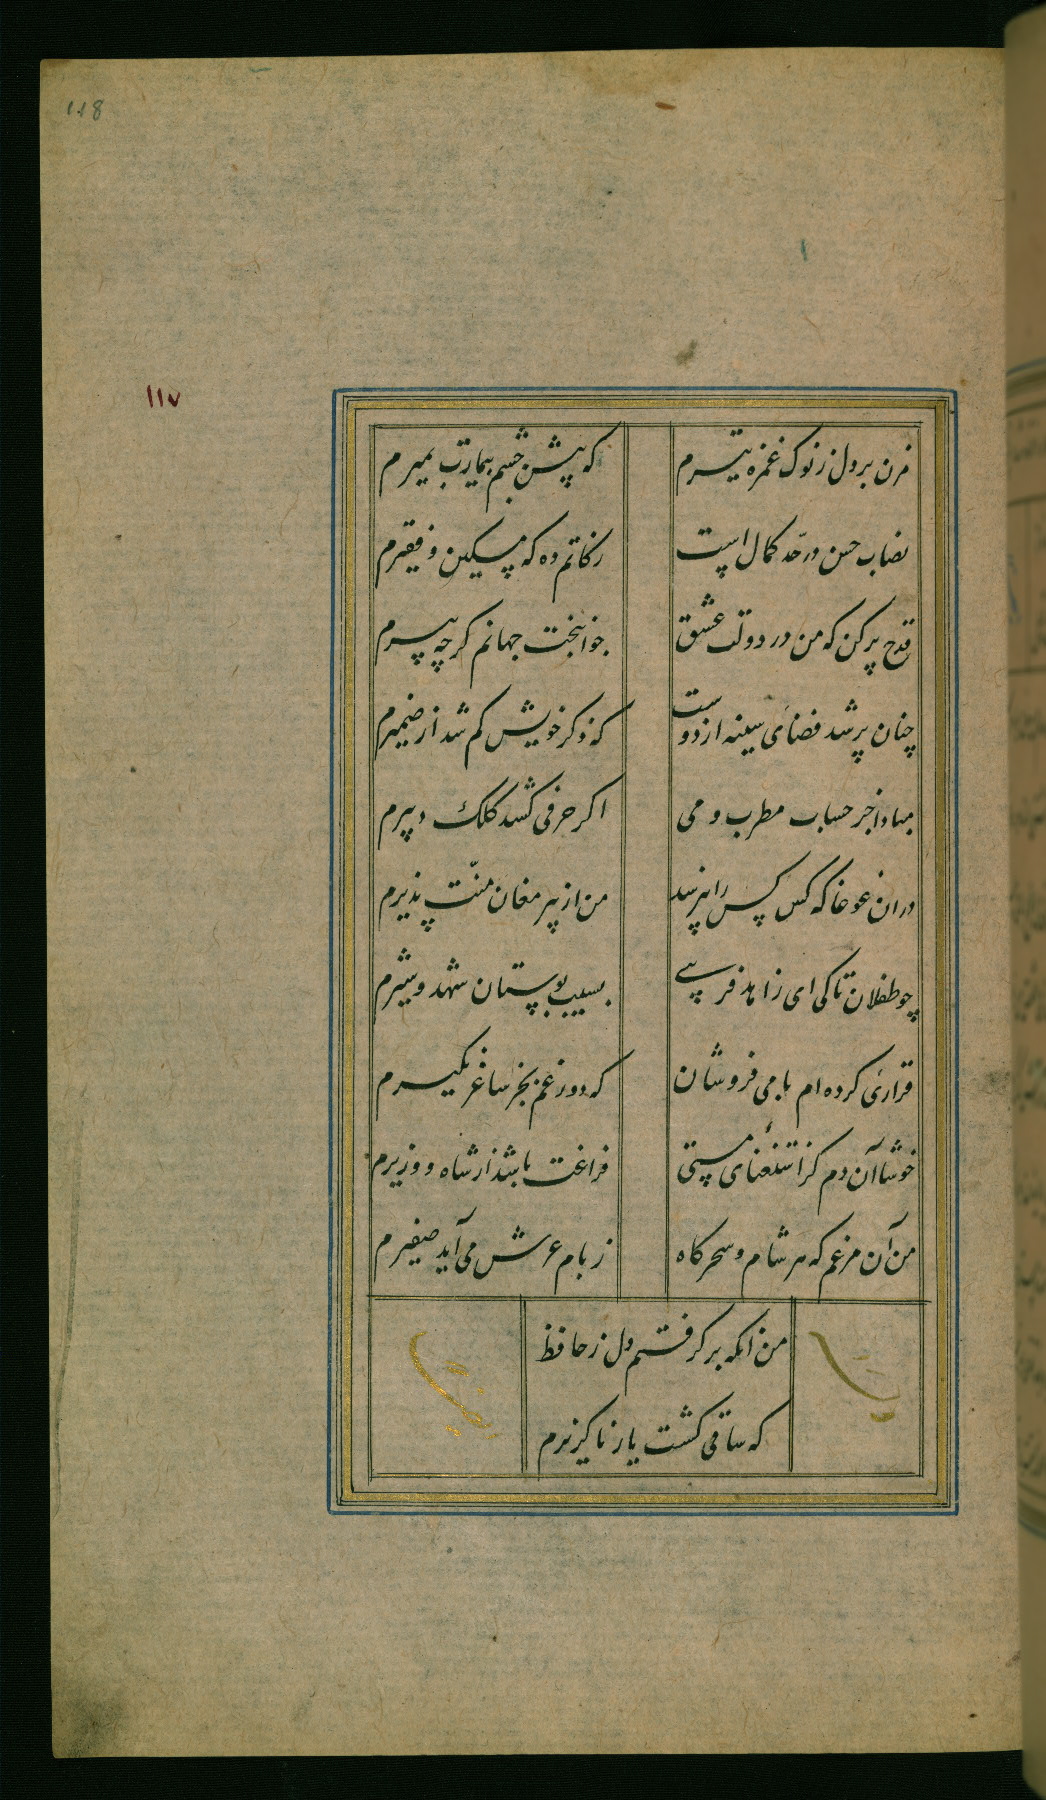 118
۱۱۷
مزن بر دل ز نوک غمزه تیرم که پیش چشم بیمارت بمیرم
نصاب حسن در حد کمال است زکاتم ده که مسکین و فقیرم
قدح پر کن که من در دولت عشق جوانبخت جهانم کرچه پیرم
چنان پر شد فضای سینه از دوست که ذکر خویش کم شد از ضمیرم
مبادا جز حساب مطرب و می اکر حرفی کشد کلک دبیرم
دران غوغا که کس کس را نپرسد من از پیر مغان منّت پذیرم
چو طفلان تا کی ای زاهد فریبی بسیب بوستان شهد و شیرم
قراری کرده‌ام با می فروشان که روز غم بجز ساغر نکیرم
خوشا آن دم کز استغنای مستی فراغت باشد از شاه و وزیرم
من آن مرغم که هر شام و سحرکاه ز بام عرش می‌آید صفیرم
من انکه بر کرفتم دل ز حافظ
که ساقی کشت یار ناکزیرم